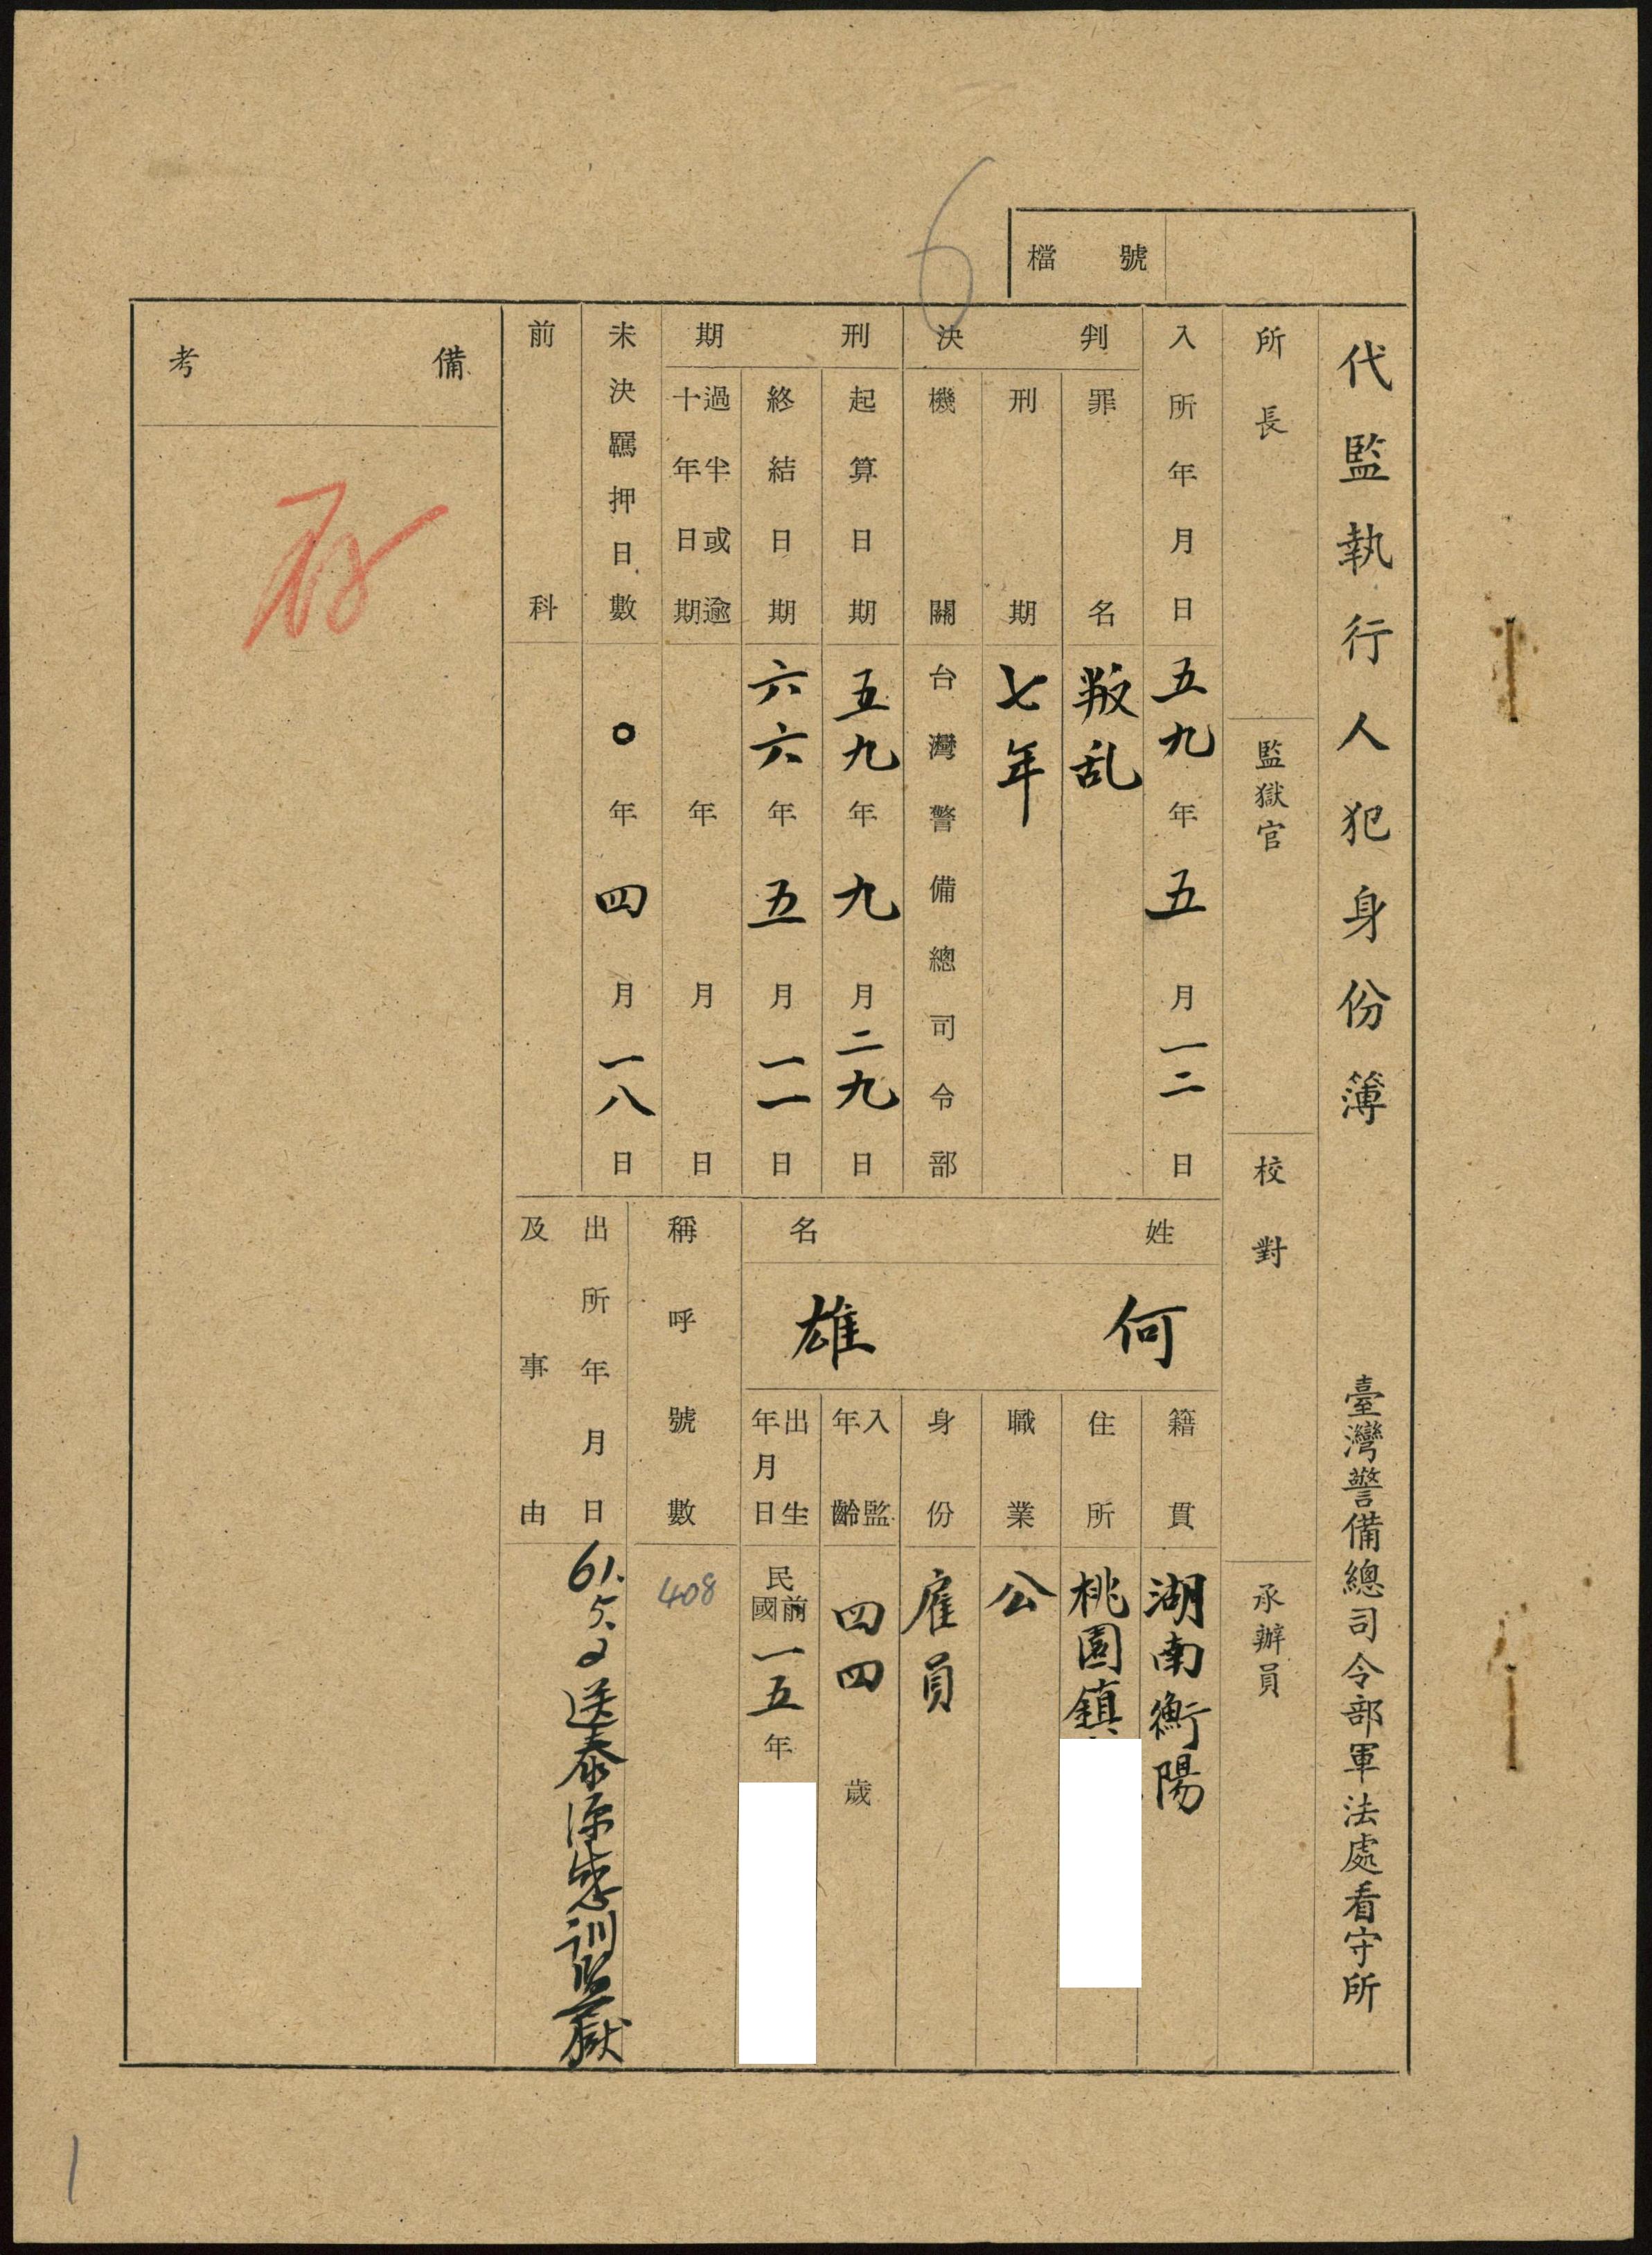 檔號
代監執行人犯身份簿 臺灣警備總司令部軍法處看守所
所長 監獄官 校對 承辦員
入所年月日 五九年五月一二日
判決
罪名 叛乱
刑期 七年
機關 台灣警備總司令部
刑期
起算日期 五九年九月二九日
終結日期 六六年五月一一日
過半或逾十年日期 年 月 日
未決羈押日數 0年四月一八日
前科
姓名
何雄
籍貫 湖南衡陽
住所 桃園鎮
職業 公
身份 雇員
入監年齡 四四歲
出生年月日 民國前一五年
稱呼號數 408
出所年月日及事由 61.5.2送泰源感訓監獄
備考
存
6
1